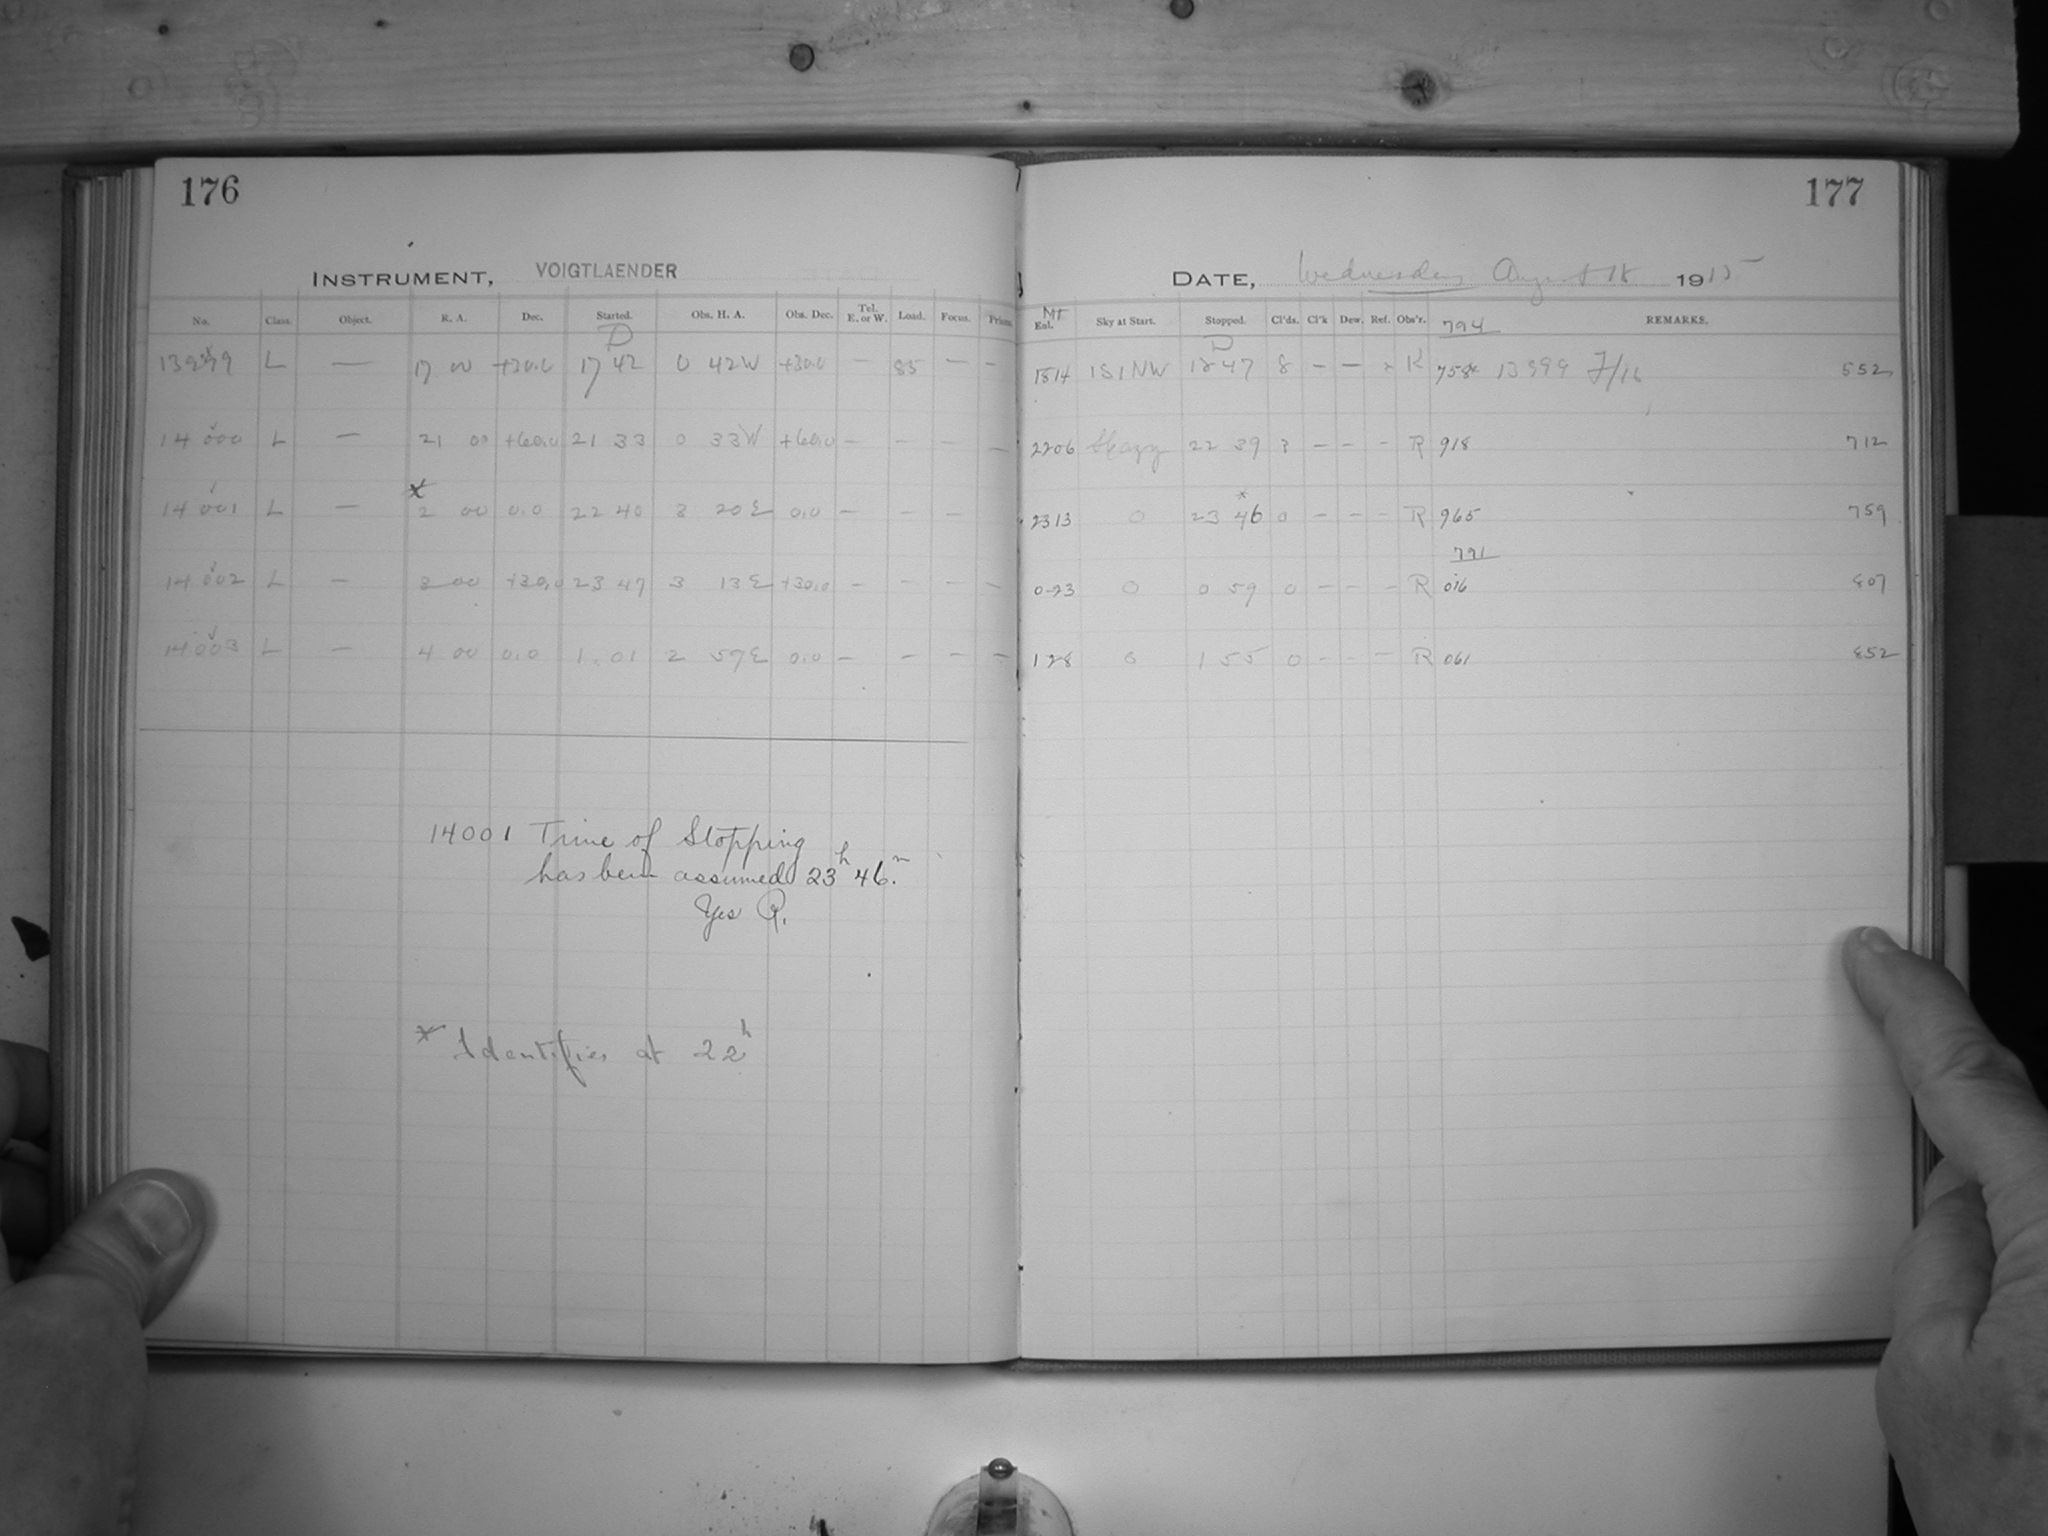 176
INSTRUMENT, VOIGTLAENDER
No. Class. Object. R. A. Dec. Started. Obs. H. A. Obs. Dec. Tel. E. or W. Load. Focus. Prism.
D
13999 L — 17 00 +30.0 17 42 0 42W +30.0 — 85 — —
14000 L — 21 00 +60.0 21 33 0 33W +60.0 — — — —
14001 L — * 2 00 0.0 22 40 3 20E 0.0 — — — —
14002 L — 3 00 +30.0 23 47 3 13E +30.0 — — — —
14003 L — 4 00 0.0 1.01 2 57E 0.0 — — — —
14001 Time of Stopping
has been assumed 23h 46.m
Yes R.
* Identifies at 22h
177
DATE, Wednesday August 18 1915
MT
Exl. Sky at Start. Stopped. Cl'ds. Cl'k Dew. Ref. Obs'r. 794 REMARKS.
D
1814 1S1NW 18 47 8 — — K 13999 F/16 552
2206 22 39 3 — — - R 918 712
*
2313 0 23 46 0 — — - R 965 759
791
023 0 0 59 0 — — - R 016 807
128 0 1 55 0 - - — R 061 852